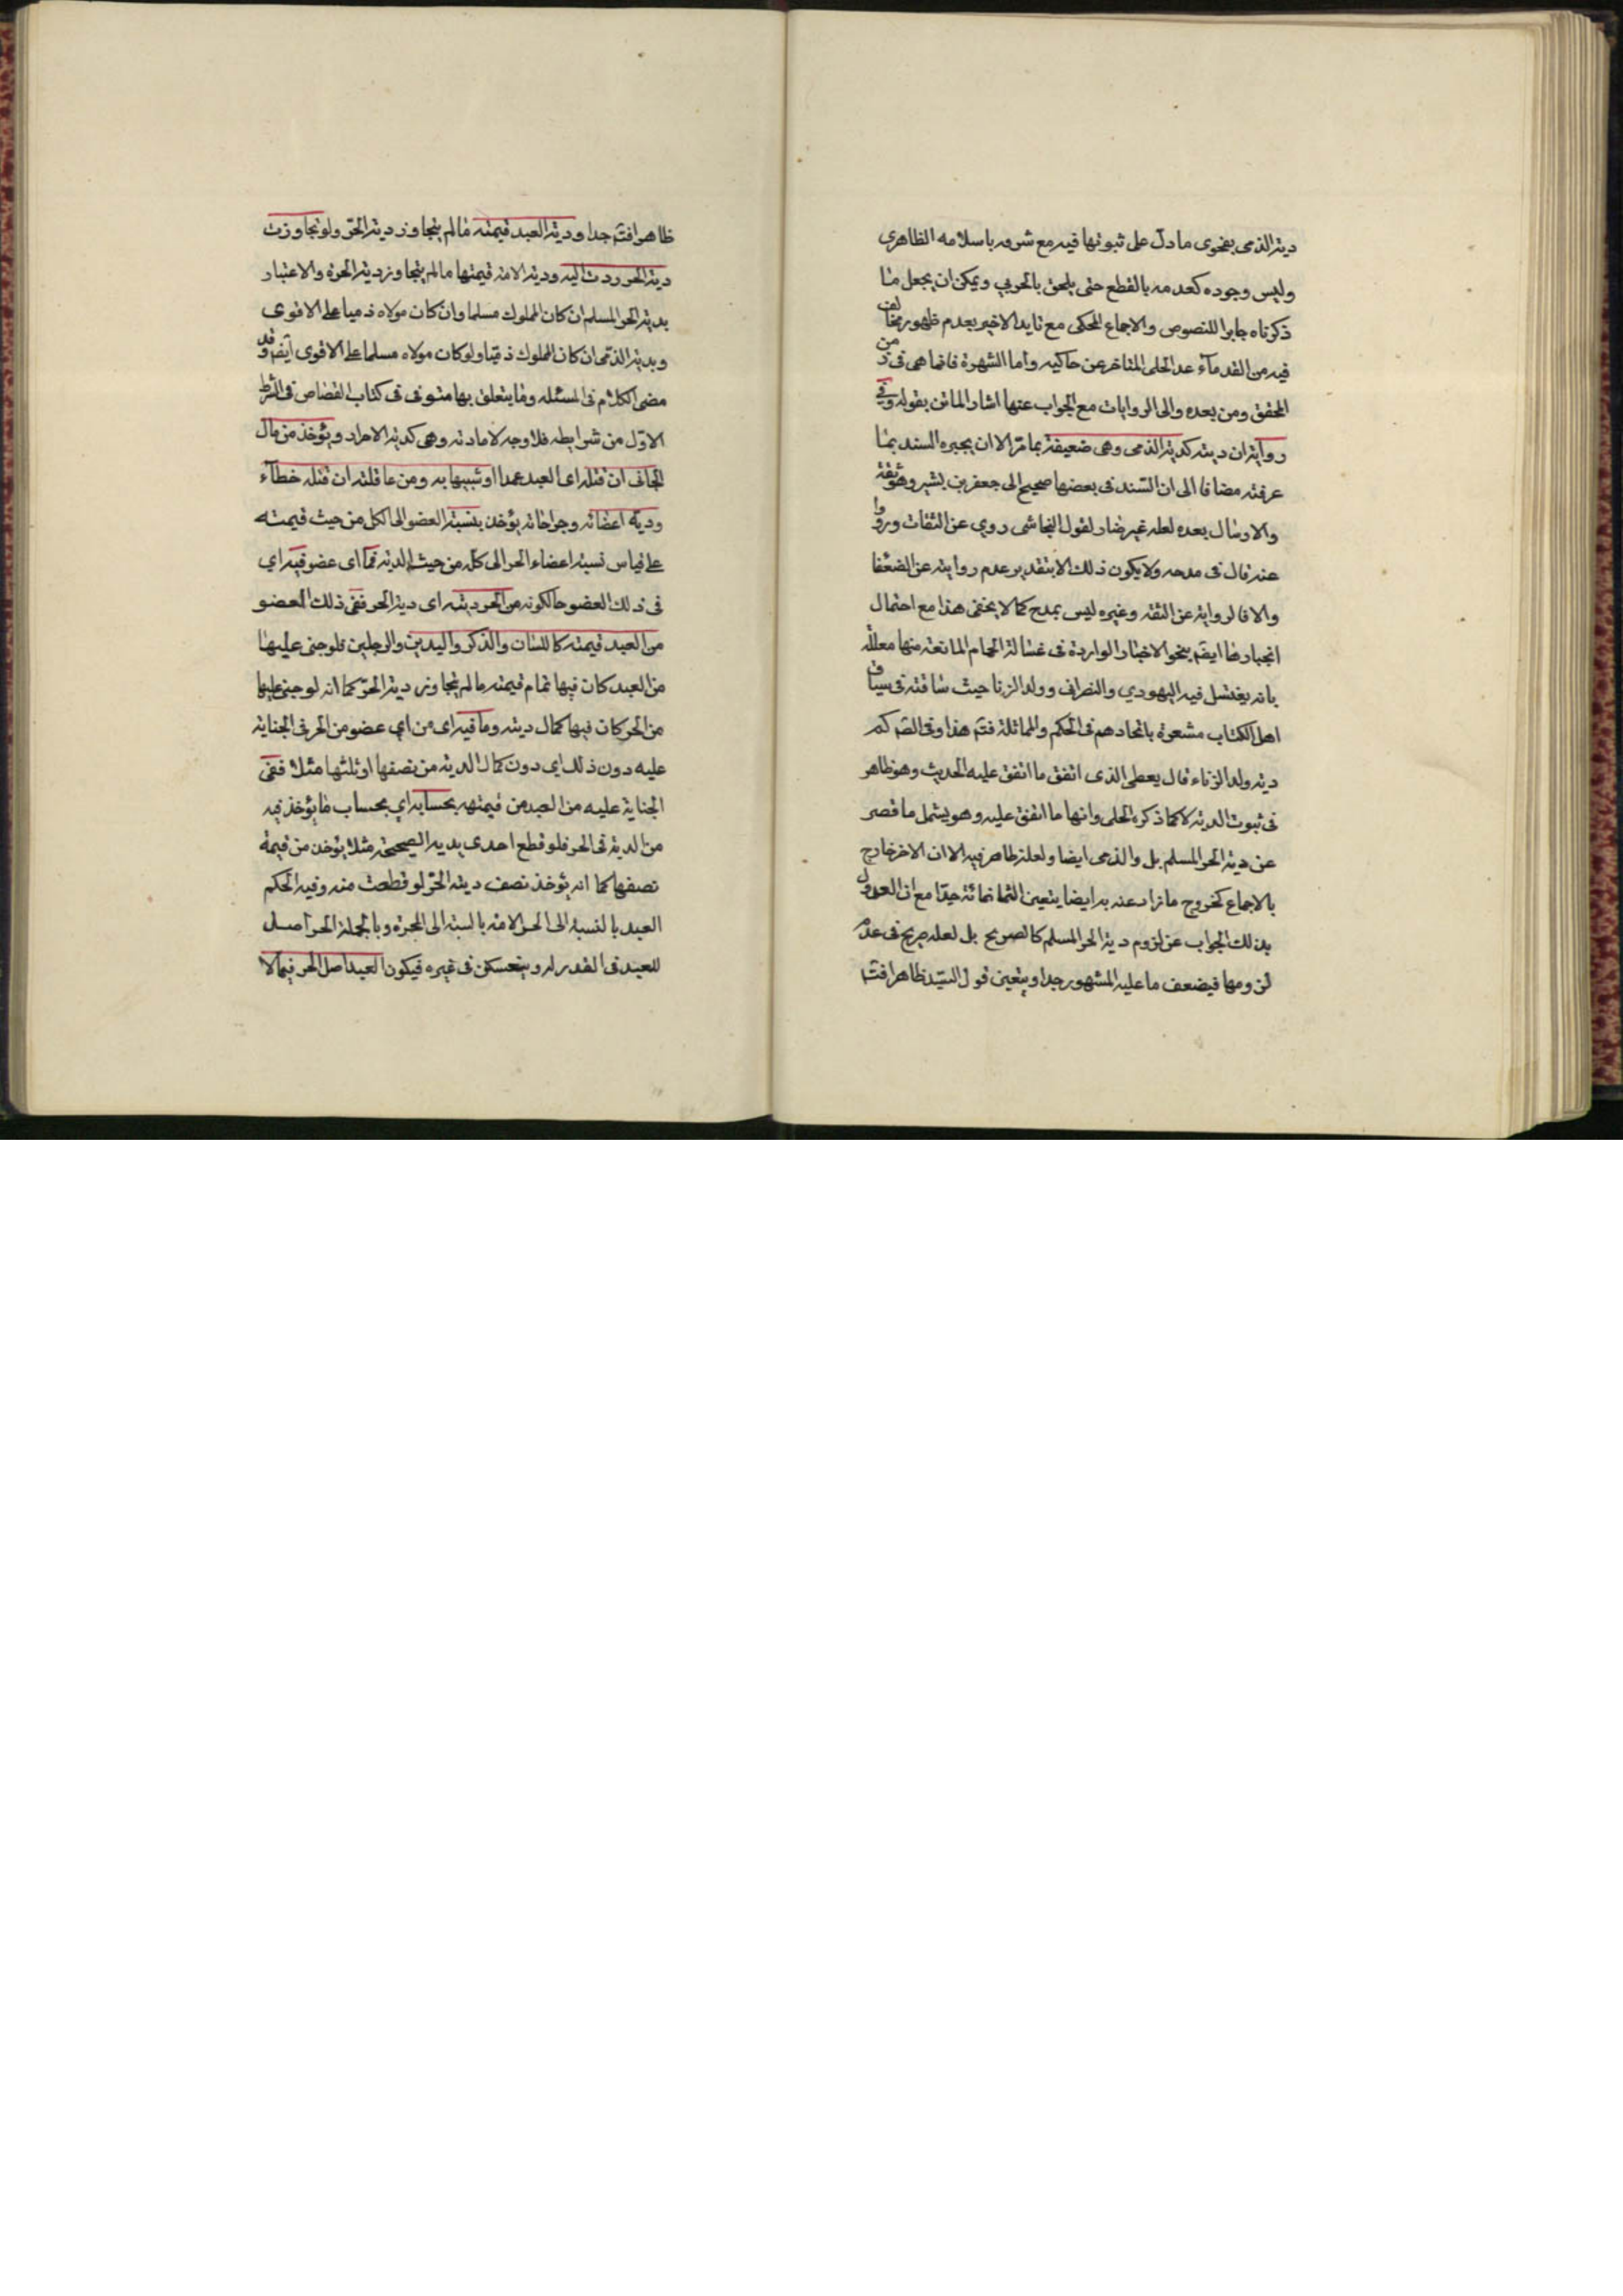 دية الذمى بفحوى ما دل على ثبوتها فيه مع شرفه باسلامه الظاهرى
وليس وجوده كعدمه بالقطع حتى يلحق بالحربي ويمكن ان يجعل ما
ذكرناه جابرا للنصوص والاجماع المحكى مع تايد الاخير بعدم ظهور مخالف
فيه من القدمآء عد الحلى المتاخر عن حاكيه واما الشهرة فانما هى فى زمن
المحقق ومن بعده والى الروايات مع الجواب عنها اشار الماتن بقوله وفي
رواية ان ديته كدية الذمى وهى ضعيفة بما مرّ الا ان يجبره السند بما
عرفته مضافا الى ان السّند فى بعضها صحيح الى جعفر بن بشير وهو ثقة
والارسال بعده لعله غير ضار لقول النجاشى روي عن الثقات ورووا
عنه قال فى مدحه ولا يكون ذلك الا بتقدير عدم روايته عن الضعفا
والا فالرواية عن الثقه وغيره ليس بمدح كما لا يخفى هذا مع احتمال
انجبارها ايضم بنحو الاخبار الواردة فى غسالة الحمام المانعة منها معللة
بانه يغتسل فيه اليهودي والنصرانى وولد الزنا حيث ساقته فى سياق
اهل الكتاب مشعرة باتحادهم فى الحكم والمماثلة فتم هذا وفى الصّ كم
دية ولد الزناء قال يعطى الذى انفق ما انفق عليه الحديث وهو ظاهر
فى ثبوت الدية لا كما ذكره الحلى وانها ما انفق عليه وهو يشمل ما قصر
عن دية الحر المسلم بل والذمى ايضا ولعله ظاهر فيه الا ان الاخر خارج
بالاجماع كخروج ما زاد عنه به ايضا يتعين الثمانمائة جدّا مع ان العدول
بذلك الجواب عن لزوم دية الحر المسلم كالصريح بل لعله صريح فى عدم
لزومها فيضعف ما عليه المشهور جدا ويتعين قول السيّد ظاهرا فتم
ظاهرا فتم جدا ودية العبد قيمته مالم يتجاوز دية الحرّ ولو تجاوزت
دية الحر ردت اليه ودية الامة قيمتها مالم يتجاوز دية الحرة والاعتبار
بدية الحر المسلم ان كان المملوك مسلما وان كان مولاه ذميا على الاقوى
وبدية الذمّى ان كان المملوك ذميّا ولو كان مولاه مسلما على الاقوى ايضم وقد
مضى الكلام فى المسئله وما يتعلق بها مستوفى فى كتاب القصاص فى الشرط
الاوّل من شرايطه فلا وجه لاعادته وهى كدية الاحرار ويؤخذ من مال
الجانى ان قتله اى العبد عمدا او شبيها به ومن عاقلته ان قتله خطآء
ودية اعضائه وجراحاته يؤخذ بنسبة العضو الى الكل من حيث قيمته
على قياس نسبة اعضاء الحر الى كله من حيث الدية فما اى عضو فيه اي
فى ذلك العضو حالكونه من الحر ديته اى دية الحر ففى ذلك العضو
من العبد قيمته كاللسان والذكر واليدين والرجلين فلو جنى عليها
من العبد كان فيها تمام قيمته مالم يتجاوز دية الحرّ كما انه لو جنى عليها
من الحر كان فيها كمال ديته وما فيه اى من اي عضو من الحر فى الجناية
عليه دون ذلك اى دون كمال الدية من نصفها او ثلثها مثلا ففى
الجناية عليه من العبد من قيمته بحسابه اي بحساب ما يؤخذ فيه
من الدية فى الحر فلو قطع احدى يديه الصحيحة مثلا يؤخذ من قيمة
نصفها كما انه يؤخذ نصف دية الحرّ لو قطعت منه وفيه الحكم
العبد بالنسبة الى الحر الامة بالنسبة الى الحرة وبالجملة الحر اصل
للعبد فى المقدر له وينعكس فى غيره فيكون العبد اصل الحر فيما لا